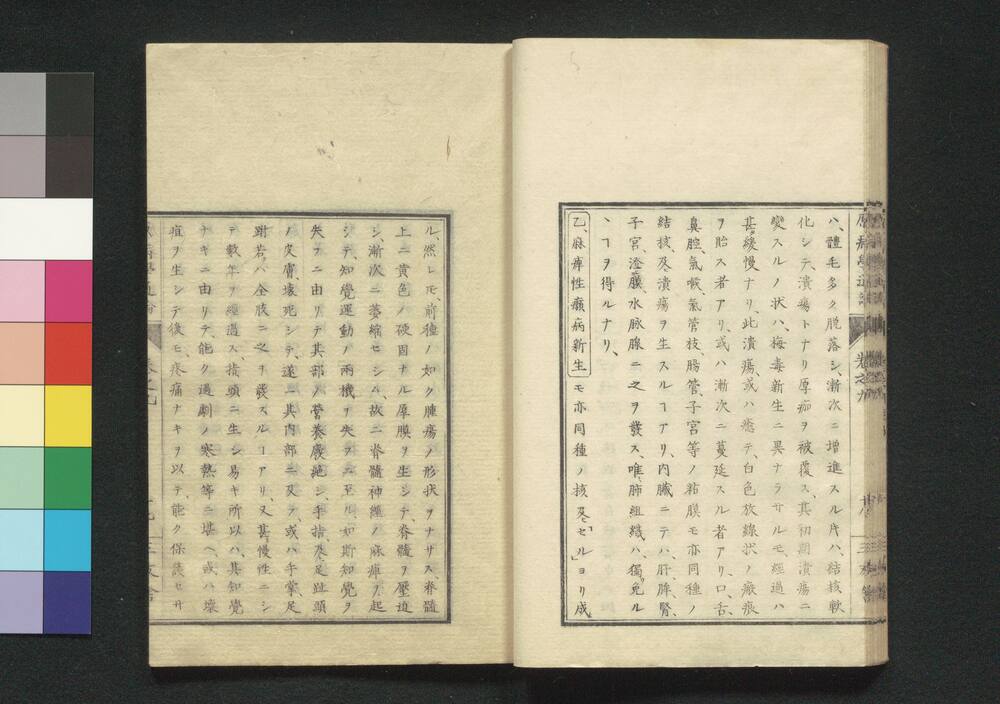 ハ、體毛多ク脱落シ、漸次ニ增進スル片ハ、結核軟
化シテ、潰瘍トナリ厚痂ヲ被覆ス、其初期潰瘍ニ
變スルノ状ハ、梅毒新生ニ異ナラサルモ、經過ハ
甚緩慢ナリ、此潰瘍、或ハ癒テ、白色放線状ノ瘢痕
ヲ貽ス者アリ、或ハ漸次ニ蔓延スル者アリ、口、舌、
鼻腔、氣喉、氣管枝、腸管、子宮等ノ粘膜モ亦同種ノ
結核、及潰瘍ヲ生スルヿアリ、内臓ニテハ、肝、脾、腎、
子宮、澄膜、水脉腺ニ之ヲ發ス、唯、肺組織ハ、獨免ル
丶ヿヲ得ルナリ、
乙、麻痺性癩病新生 モ亦同種ノ核及「セル」ヨリ成
ル、然レモ、前種ノ如ク腫瘍ノ形状ヲナサス、脊髓
上ニ黄色ノ硬固ナル厚膜ヲ生シテ、脊髓ヲ壓迫
シ、漸次ニ萎縮セシム、故ニ脊髓神經ノ麻痺ヲ起
シテ、知覺運動ノ兩機ヲ失フニ至ル、如斯知覺ヲ
失フニ由リテ、其部ノ營養廢絶シ、手指、及足趾頭
ノ皮膚、壊死シテ、遂ニ其内部ニ及ヒ、或ハ手掌、足
跗、若ハ全肢ニ之ヲ發スルヿアリ、又甚慢性ニシ
テ數年ヲ經過ス、指頭ニ生シ易キ所以ハ、其知覺
ナキニ由リテ、能ク過劇ノ寒熱等ニ堪ヘ、或ハ壊
疽ヲ生シテ後モ、疼痛ナキヲ以テ、能ク保護セサ